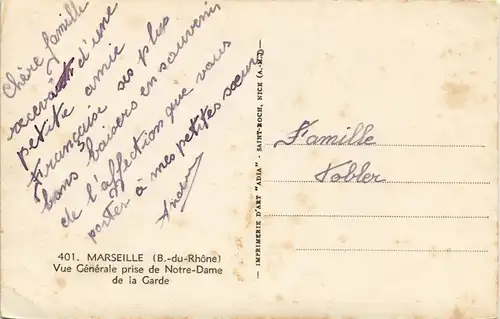 Chère famille
recevait d'une
petite amie
Française ses plus
bons baisers en souvenir
de l'affection que vous
porter à mes petites sœur
401. MARSEILLE (B.-du-Rhône)
Vue Générale prise de Notre-Dame
de la Garde
IMPRIMERIE D'ART "ADIA" - SAINT-ROCH, NICE (A.-M.)
Famille
Tobler